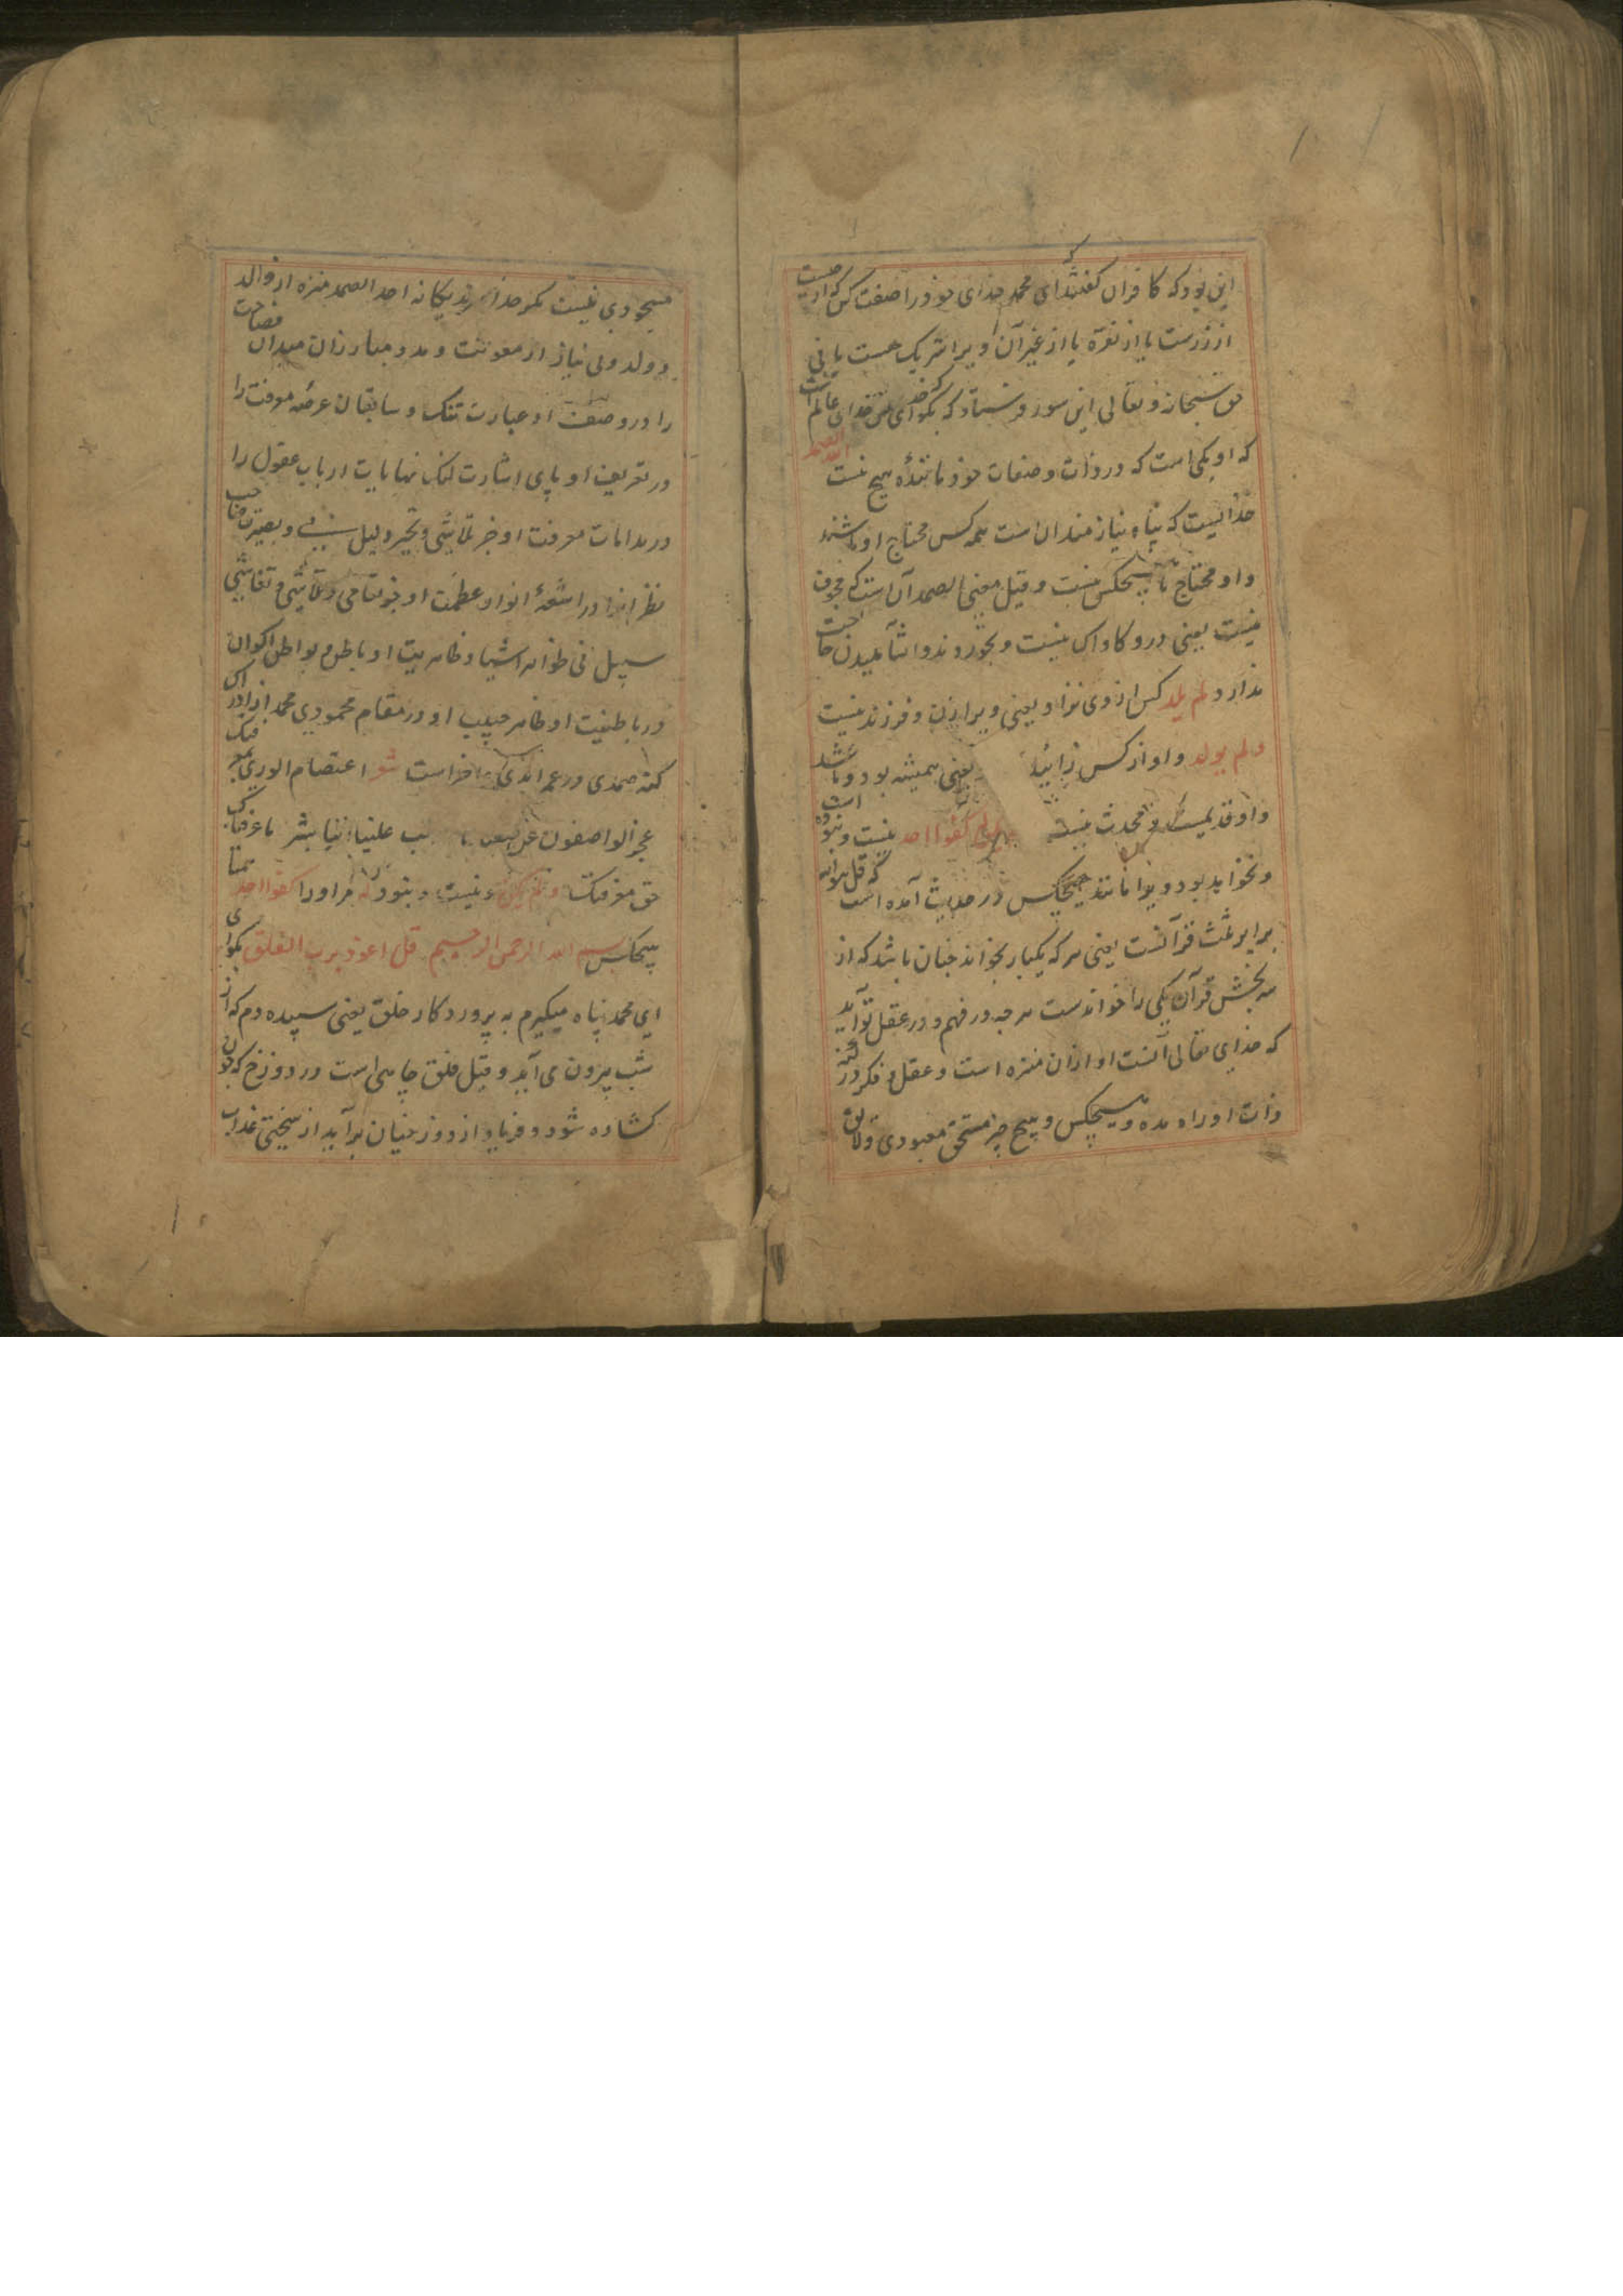 این بود که کافران گفتند ای محمد خدای خود را صفت کن که از چیست
از زرست یا از نقره یا از غیر آن ویرا شریک هست یا نی
حق سبحانه و تعالی این سوره فرستاد که بکو ای خدای عالم
که او یکی است که در ذات و صفات خود مانندهٔ هیچ نیست الله الصمد
خدائیست که پناه نیازمندان است همه کس محتاج او باشند
و او محتاج با هیچکس نیست و قیل معنی الصمد آن است که مجوف
نیست یعنی درو کاواکی نیست و نخورد و نیاشامیدن حاجت
ندارد لم یلد کس از وی نزاد یعنی ویرا زن و فرزند نیست
ولم یولد و او از کس زائیده یعنی همیشه بود و باشد
و او قدیمست محدث نیست کفوا احد نیست و نبوده است
و نخواهد بود ویرا مانند هیچکس در حدیث آمده است که قل هوالله
برابر ثلث قرآنست یعنی هر که یکبار بخواند چنان باشد که از
سه بخش قرآن یکی را خواندست هر چه در فهم و در عقل تو آید
که خدای تعالی آنست او ازان منزه است و عقل و فکر در کنه
ذات او راه مده و هیچکس و هیچ چیز مستحق معبودی و لایق
مسجودی نیست مکر خداوند یکانه احد الصمد منزه از والد
و ولد و بی نیاز از معونت و مدد مبارزان میدان فصاحت
را در وصف او عبارت تنک و سابقان عرصه معرفت را
در تعریف او پای اشارت لنک نهایات ارباب عقول را
در بدایات معرفت او جز تلاشی و تحیر دلیل نی و بصیرت صاحب
نظرانرا در اشعهٔ انوار عظمت او جز تعامی و تلاشی و تغاشی
سبیل نی ظواهر اشیا و ظاهریت او باطن و بواطن اکوان
در باطنیت او ظاهر حبیب او در مقام محمودی محمد از ادراک
کنه صمدی در عجز است شعر اعتصام الوری بمغفرتک
عجز الواصفون عن صفتک تب علینا اننا بشر ما عرفناک
حق معرفتک ولم یکن و نیست و نبود له مر او را کفوا احد همتا
هیچکس بسم الله الرحمن الرحیم قل اعوذ برب الفلق بکوی
ای محمد پناه میکیرم به پروردکار خلق یعنی سپیده دم که از
شب بیرون می آید و قیل فلق چاهی است در دوزخ که چون
کشاده شود و فریاد از دوزخیان برآید از سختی عذاب